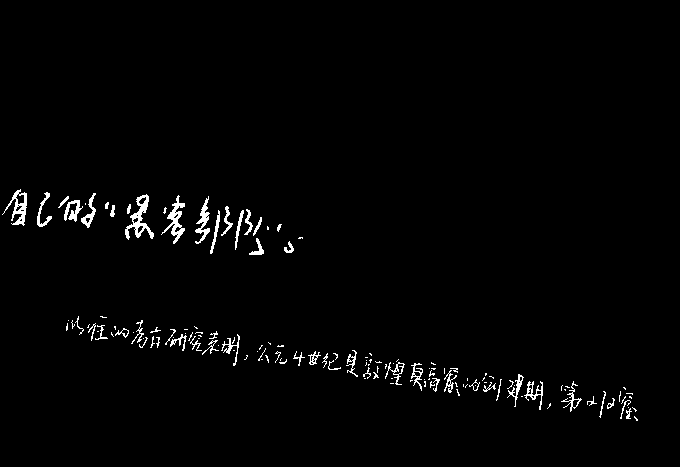 自己的“黑客部队”。
以往的考古研究表明,公元4世纪是敦煌莫高窟的创建期,第272窟